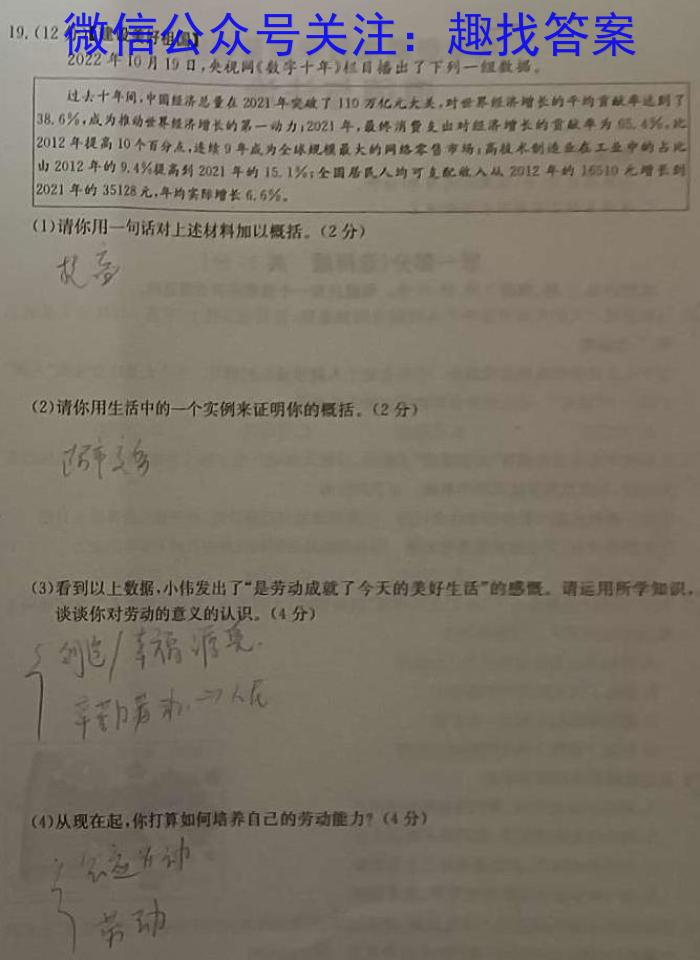 微信公众号关注：趣找答案
19.(12分)【建设美好祖国】
2022年10月19日,央视网《数字十年》栏目播出了下列一组数据。
过去十年间,中国经济总量在2021年突破了110万亿元大关,对世界经济增长的平均贡献率达到了
38.6%,成为推动世界经济增长的第一动力;2021年,最终消费支出对经济增长的贡献率为65.4%,比
2012年提高10个百分点,连续9年成为全球规模最大的网络零售市场;高技术制造业在工业中的占比
由2012年的9.4%提高到2021年的15.1%;全国居民人均可支配收入从2012年的16510元增长到
2021年的35128元,年均实际增长6.6%。
(1)请你用一句话对上述材料加以概括。(2分)
提高
(2)请你用生活中的一个实例来证明你的概括。(2分)
(3)看到以上数据,小伟发出了“是劳动成就了今天的美好生活”的感慨。请运用所学知识,
谈谈你对劳动的意义的认识。(4分)
创造/幸福源泉.
辛勤劳动.⇒人民
(4)从现在起,你打算如何培养自己的劳动能力?(4分)
劳动